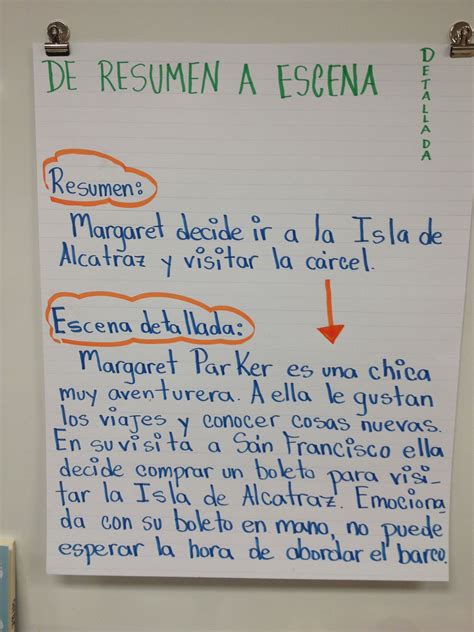 DE RESUMEN A ESCENA
DETALLADA
Resumen:
Margaret decide ir a la Isla de
Alcatraz y visitar la cárcel.
Escena detallada:
Margaret Parker es una chica
muy aventurera. A ella le gustan
los viajes y conocer cosas nuevas.
En su visita a San Francisco ella
decide comprar un boleto para visi-
tar la Isla de Alcatraz. Emociona-
da con su boleto en mano, no puede
esperar la hora de abordar el barco.